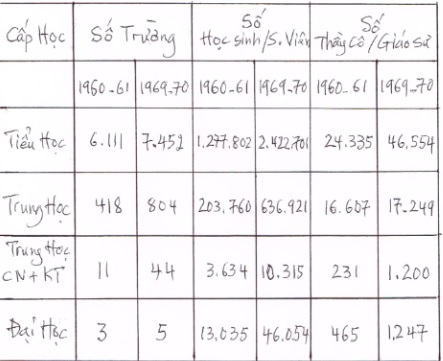 Cấp Học Số Trường Số Học sinh/S. Viên Số Thầy Cô/Giáo sư
1960-61 1969-70 1960-61 1969-70 1960-61 1969-70
Tiểu Học 6.111 7.452 1.277.802 2.422.701 24.335 46.554
Trung Học 418 804 203.760 636.921 16.607 17.249
Trung Học CN+KT 11 44 3.634 10.315 231 1.200
Đại Học 3 5 13.035 46.054 465 1.247